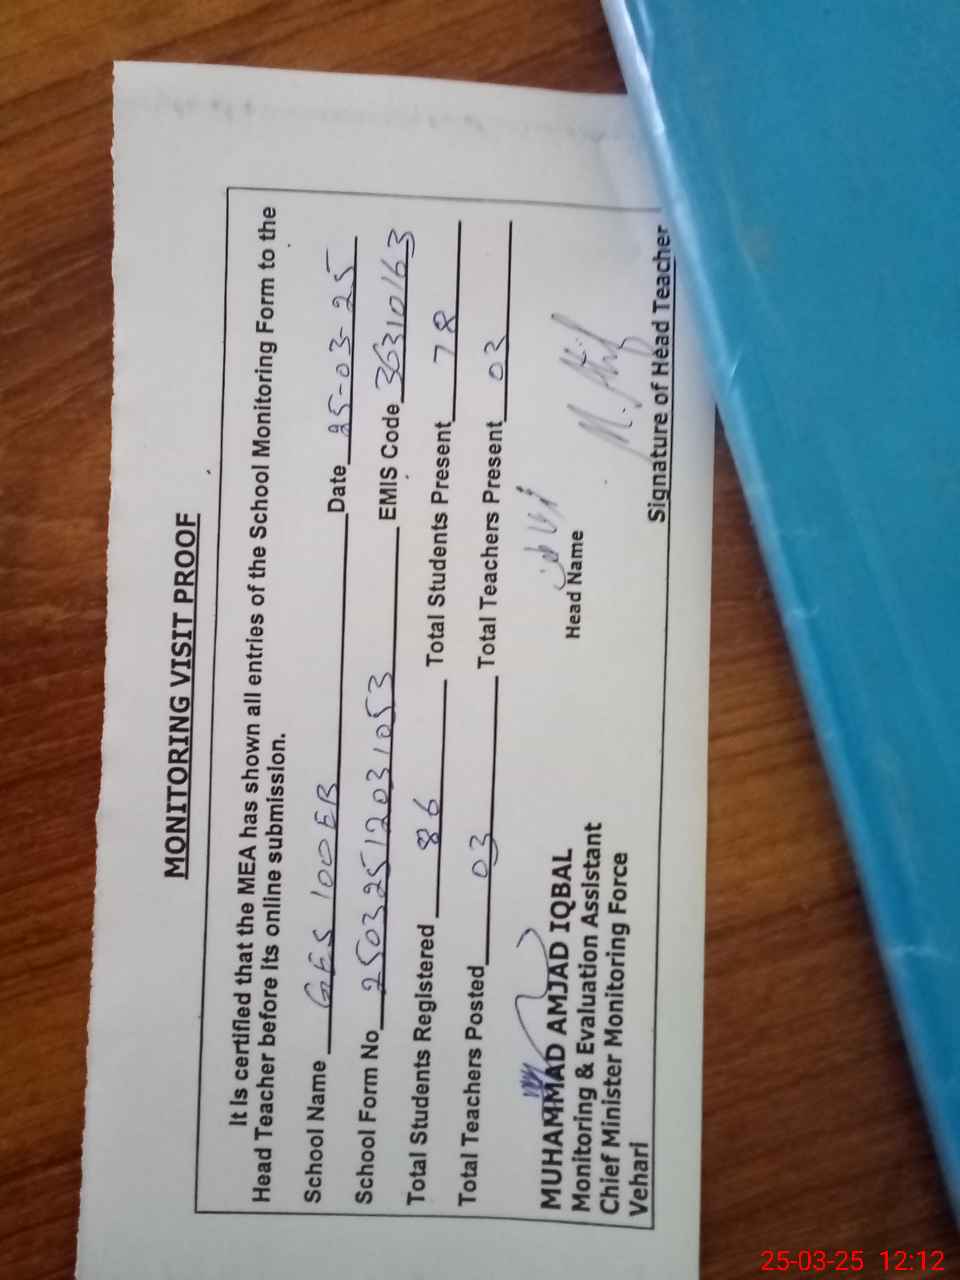 MONITORING VISIT PROOF
It is certified that the MEA has shown all entries of the School Monitoring Form to the
Head Teacher before its online submission.
School Name GES 100 EB Date 25-03-25
School Form No 25032512031053 EMIS Code 36310163
Total Students Registered 86 Total Students Present 78
Total Teachers Posted 03 Total Teachers Present 03
MUHAMMAD AMJAD IQBAL
Monitoring & Evaluation Assistant
Chief Minister Monitoring Force
Vehari
Head Name
Signature of Head Teacher
25-03-25 12:12